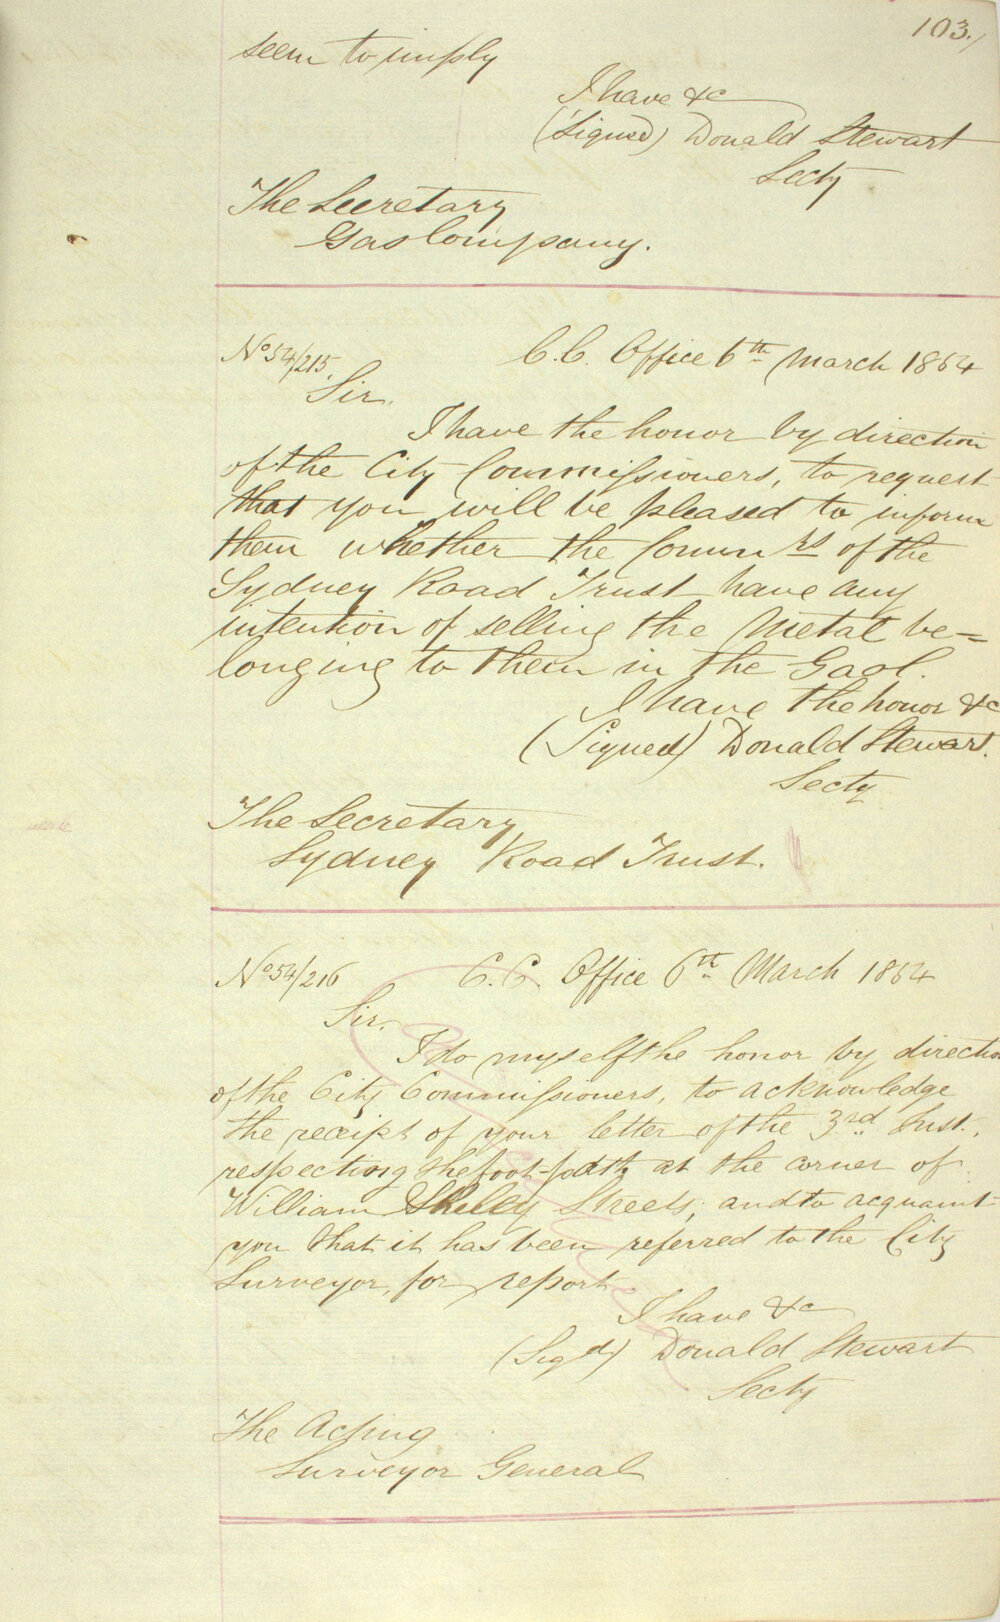 103.
seem to imply
I have &c
(Signed) Donald Stewart
Secty
The Secretary
Gas Company.
No 54/215. C.C. Office 6th March 1854
Sir.
I have the honor by direction
of the City Commissioners, to request
that you will be pleased to inform
them whether the Commrs of the
Sydney Road Trust have any
intention of selling the Metal be=
longing to them in the Gaol.
I have the honor &c
(Signed) Donald Stewart.
Secty
The Secretary
Sydney Road Trust.
No 54/216 C.C. Office 6th March 1854
Sir.
I do myself the honor by direction
of the City Commissioners, to acknowledge
the receipt of your letter of the 3rd Inst.,
respecting the foot-path at the corner of
William Skelly Streets, and to acquaint
you that it has been referred to the City
Surveyor, for report
I have &c
(Sigd) Donald Stewart
Secty
The Acting
Surveyor General